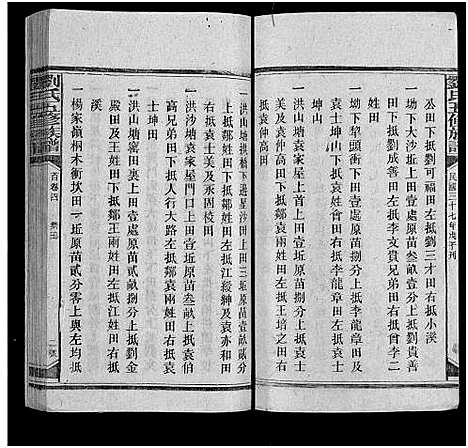 劉氏五修族譜
民國三十七年戊子刊
公田下抵劉可福田左抵劉三才田右抵小溪
一坳下大沙坵上田壹處原苗叁畝壹分上抵劉貴善
田下抵劉成善田左抵李文貴兄弟田右抵曾李二
姓田
一坳下犂頭衝下田壹處原苗捌分上抵李龍章田
下抵李士坤田左抵袁姓會田右抵李龍章田左抵
坤山
一洪沙塘袁家屋門首上田壹處原苗捌分上抵袁
士美田下抵袁仲高田左抵王培之田右
抵袁仲高田
一洪山塘拱橋下邊星沙田上田三坵原苗壹畝捌分
上抵鄒姓田下抵鄒姓田左抵江殿紳及袁亦和田
右抵袁士美及王永固稜田
一洪沙塘袁家屋左邊田一近原苗叁畝上抵袁伯
高兄弟田下抵人行大路左抵鄒袁兩姓田右抵袁
士坤田
一洪山塘窰田裏上田壹處原苗貳畝捌分上抵劉金
殿田及王姓田下抵鄒王兩姓田左抵江姓田右抵
溪
一楊家嶺桐木衝坎田一近原苗貳分零上與左均抵
劉氏五修族譜
首卷四